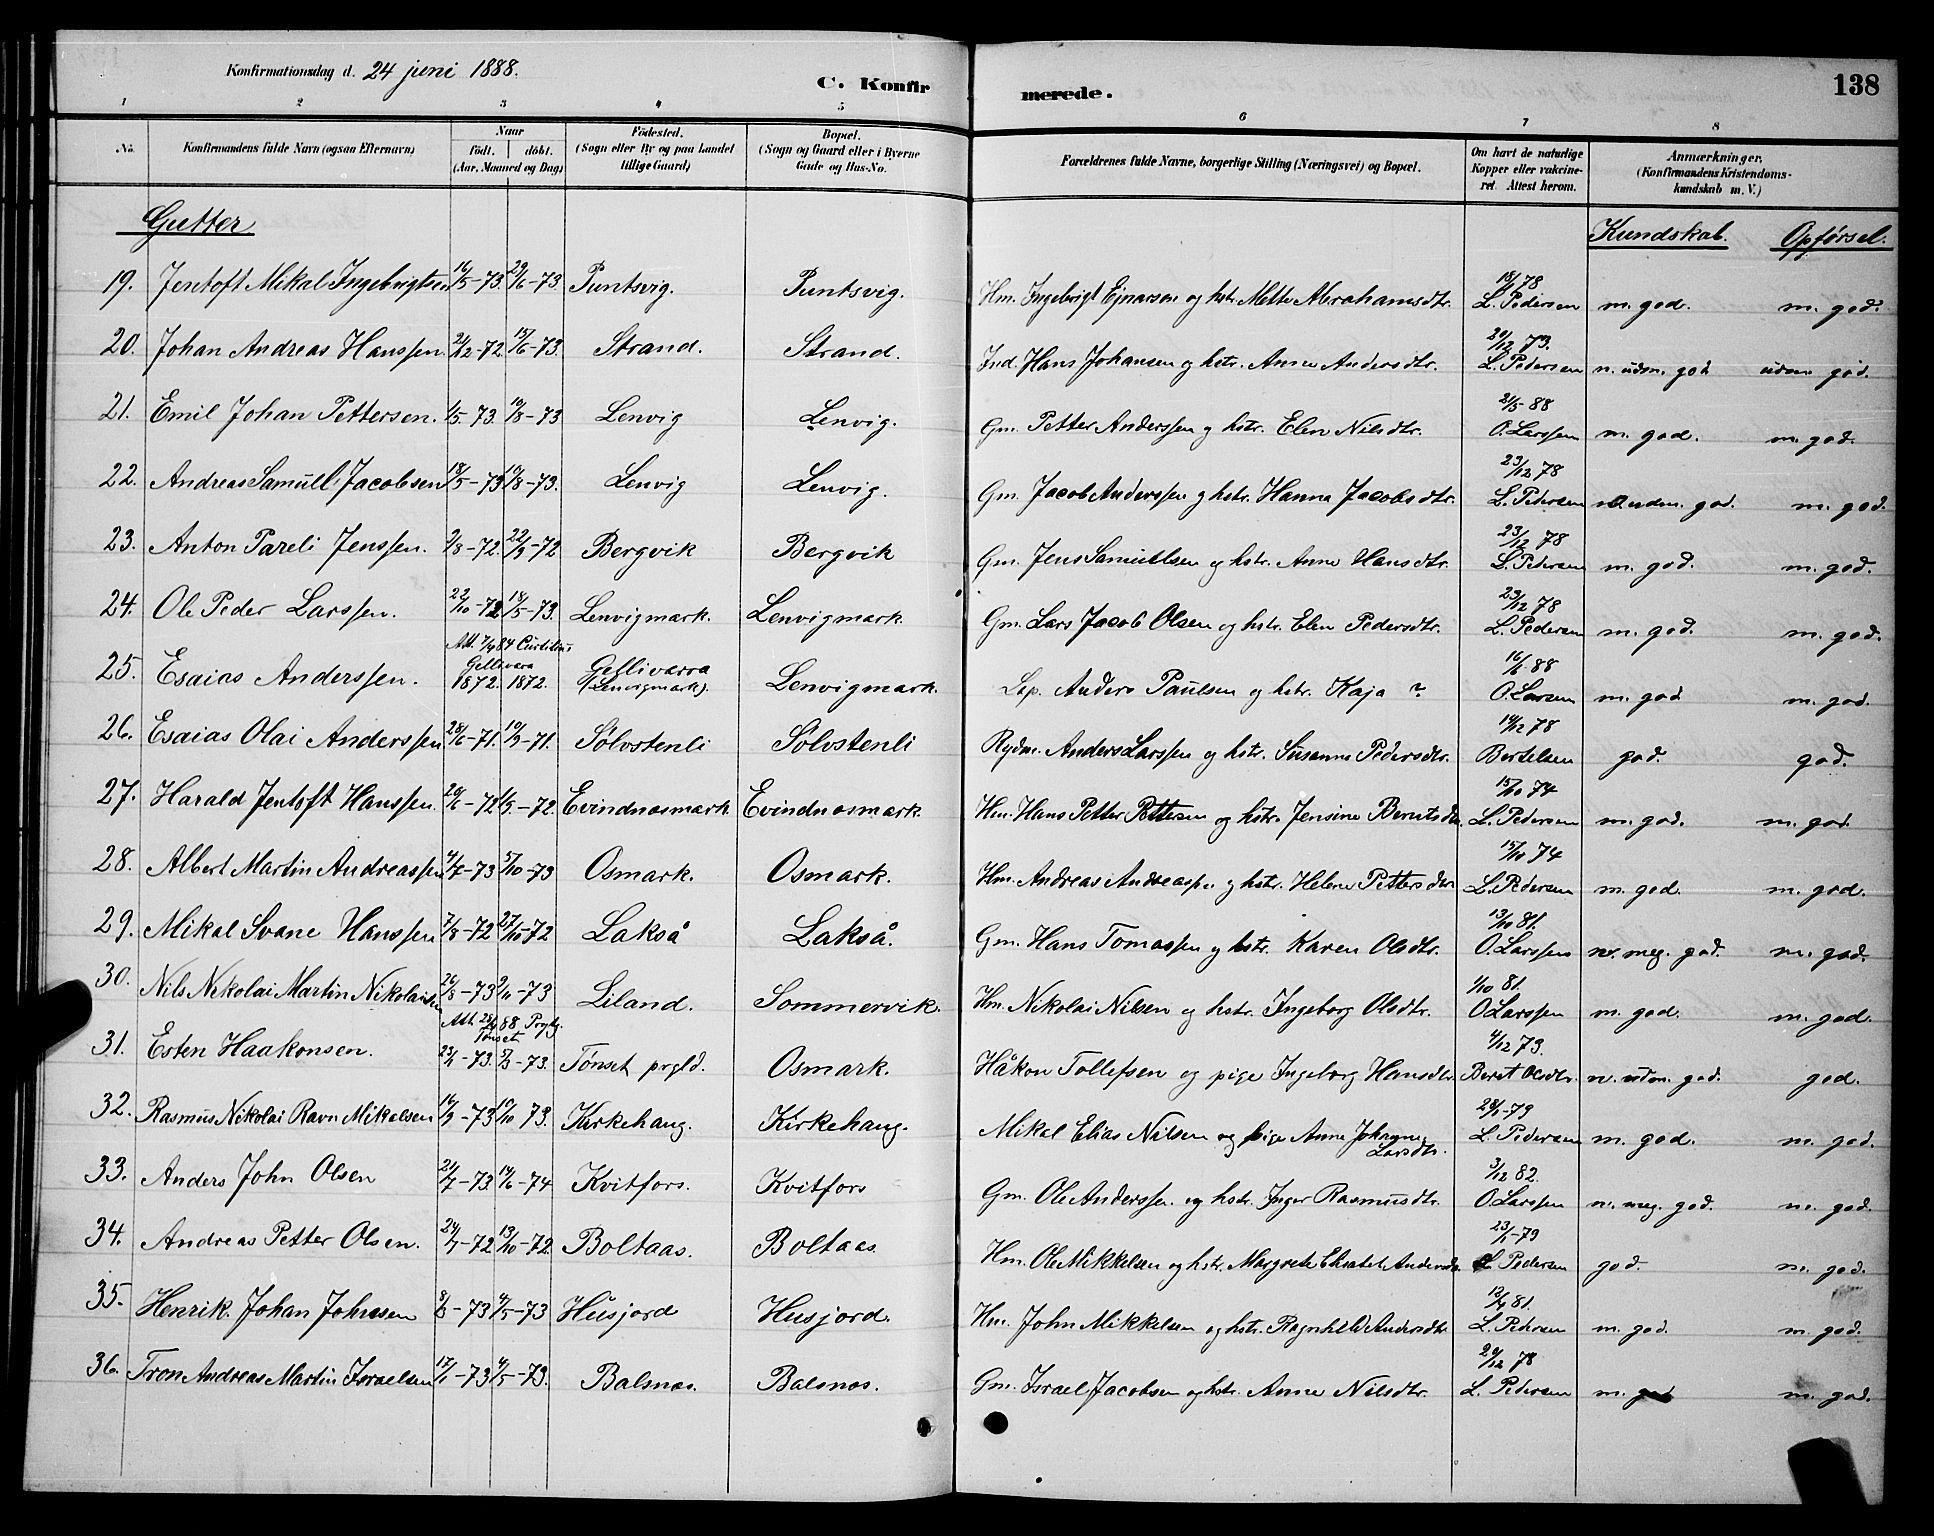 Konfirmationsdag d. 24 juni 1888.
C. Konfirmerede.
138
1 2 3 4 5 6 7 8
No. Konfirmandens fulde Navn (ogsaa Efternavn) Naar födt. döbt. (Aar, Maaned og Dag) Födested. (Sogn eller By og paa Landet tillige Gaard) Bopæl. (Sogn og Gaard eller i Byerne Gade og Hus-No. Forældrenes fulde Navne, borgerlige Stilling (Næringsvei) og Bopæl. Om havt de naturlige Kopper eller vakcineret. Attest herom. Anmærkninger. (Konfirmandens Kristendomskundskab m. V.)
Gutter Kundskab. Opførsel.
19. Jentoft Mikal Ingebrigtsen 16/5-73. 29/6-73. Puntsvig. Puntsvig. Hm. Ingebrigt Ejnarsen og hstr. Mette Abrahamsdtr. 78 L. Pedersen m. god. m. god.
20. Johan Andreas Hanssen. 21/12-72. 15/6-73. Strand. Strand. Ind. Hans Johansen og hstr. Anne Andersdtr. 20/12 73. L. Pedersen n. udm. god udm. god.
21. Emil Johan Pettersen. 1/5-73. 10/8-73 Lenvig Lenvig. Gm. Petter Anderssen og hstr. Elen Nilsdtr. 21/5 88 O. Larssen m. god. m. god.
22. Andreas Samuel Jacobsen 18/5-73 10/8-73. Lenvig Lenvig. Gm. Jacob Anderssen og hstr. Hanna Jacobsdtr. 23/12 78 L. Pedersen n. udm. god. m. god.
23. Anton Pareli Jenssen. 2/8-72. 22/9-72 Bergvik Bergvik Gm. Jens Samuelsen og hstr. Anne Hansdtr. 23/12 78 L. Pedersen m. god. m. god.
24. Ole Peder Larssen. 22/10-72 18/5-73. Lenvigmark. Lenvigmark. Gm. Lars Jacob Olsen og hstr. Elen Pedersdtr. 23/12 78 L. Pedersen m. god. m. god.
25. Esaias Anderssen. Att. 84 Gellivara 1872. 1872. Gellivarra (Lenvigmark). Lenvigmark. Lap. Anders Paulsen og hstr. Kaja ? 88 O. Larsen m. god m. god.
26. Esaias Olai Anderssen 28/6-71. 10/9-71. Sølvstenli Sølvstenli Rydm. Anders Larssen og hstr. Susanne Pedersdtr. 14/12 78 Bertelsen god. god.
27. Harald Jentoft Hanssen. 20/6-72 1/9-72. Evindnæsmark Evindnæsmark. Hm. Hans Petter Pettersen og hstr. Jensine Berntsdtr. 15/10 74 L. Pedersen m. god. m. god.
28. Albert Martin Andreassen 4/7-73 5/10-73 Osmark. Osmark. Hm. Andreas Andreassen og hstr. Helene Pettersdtr 15/10 74 L. Pedersen m. god. m. god.
29. Mikal Svane Hanssen 7/8-72 27/10-72 Lakså Lakså. Gm. Hans Tomassen og hstr. Karen Olsdtr. 13/10 81. O. Larssen n. meg. god. m. god.
30. Nils Nikolai Martin Nikolaisen 26/8-73 9/11-73 Liland. Sommervik. Hm. Nikolai Nilsen og hstr. Ingeborg Olsdtr. 1/10 81. O Larssen m. god. m. god.
31. Esten Haakonsen. Att. 88 Prglg. Tønset 23/1-73. 5/3-73. Tønset prgld. Osmark. Håkon Tollefsen og pige Ingeborg Hansdtr. 4/12 73. Beret Olsdtr. n. udm. god. god.
32. Rasmus Nikolai Ravn Mikelsen 16/9-73 19/10 73. Kirkehaug. Kirkehaug. Mikal Elias Nilsen og pige Anne Johanne Larsdtr. 28/1-79 L. Pedersen m. god. m. god.
33. Anders John Olsen 24/7-73 14/6-74 Kvitfors. Kvitfors Gm. Ole Anderssen og hstr. Inger Rasmusdtr. 3/12 82. O. Larssen n. meg. god. m. god.
34. Andreas Petter Olsen. 24/7-72 13/10-72. Boltaas. Boltaas. Hm. Ole Mikkelsen og hstr. Margrete Elisabet Andersdtr 23/1-79 L. Pedersen god. m. god.
35. Henrik. Johan Johnsen 8/3-73 4/5-73 Husjord Husjord. Hm. John Mikkelsen og hstr. Ragnhild Andersdtr 81. L. Pedersen m. god. m. god.
36. Tron Andreas Martin Israelsen 17/1-73 4/5-73. Balsnæs. Balsnæs. Gm. Israel Jacobsen og hstr. Anne Nilsdtr. 20/12 78 L. Pedersen m. god m. god.